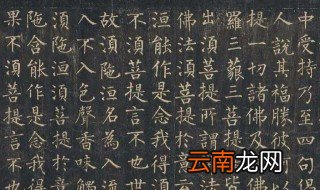 中受持乃至四句
人說其福勝彼
提一切諸佛及
羅三藐三菩提
出須菩提所謂
佛法須菩提於意
須菩提言不也世
故須陁洹名為入
入不入色聲香味觸
須陁洹須菩提於意
陁含能作是念我得
果不須菩提言不也世
云南龙网